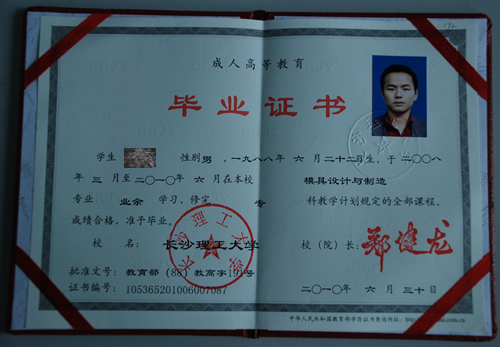 成人高等教育
毕业证书
学生 性别 男 ,一九八八年 六 月二十二日生,于二〇〇八
年 三 月至二〇一〇年 六 月在本校 模具设计与制造
专业 业余 学习,修完 专 科教学计划规定的全部课程,
成绩合格,准予毕业。
校 名: 长沙理工大学 校(院)长: 郑健龙
批准文号: 教育部(88)教高字191号
证书编号: 105365201006007087 二〇一〇年 六 月三十日
中华人民共和国教育部学历证书查询网址: